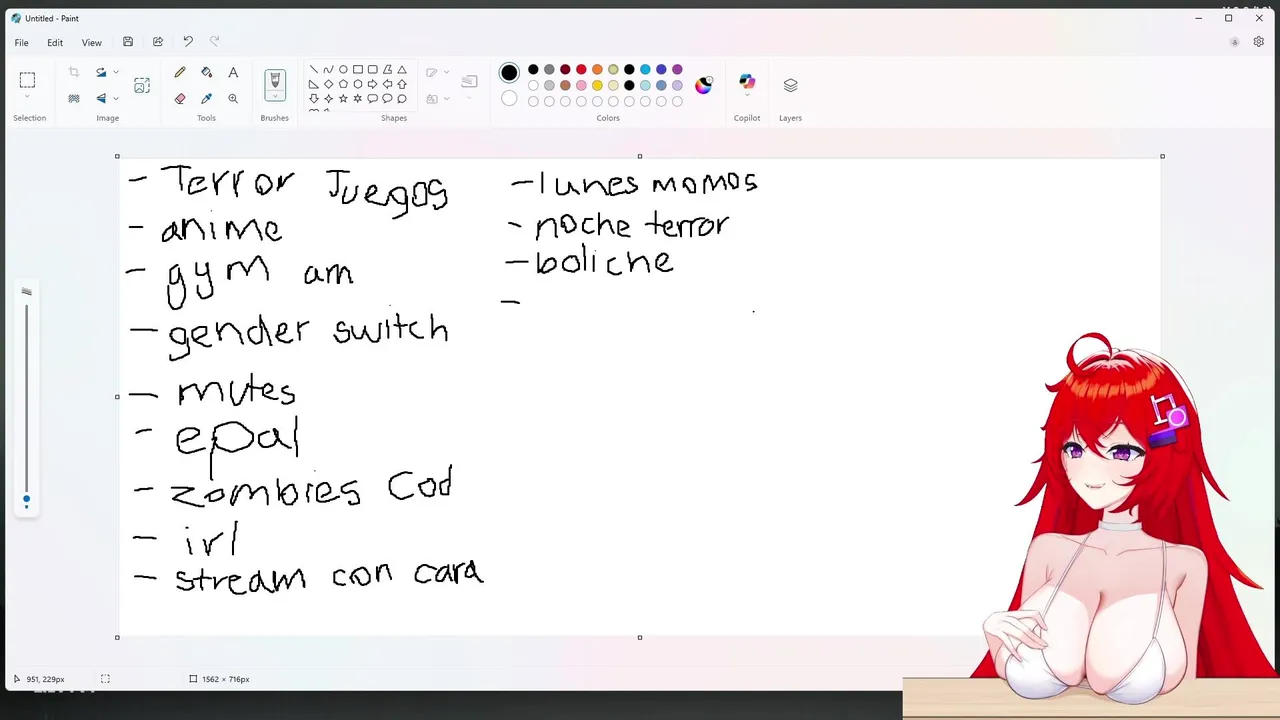 Untitled - Paint
File Edit View
Selection
Image
Tools
Brushes
Shapes
Colors
Copilot
Layers
- Terror Juegos
- anime
- gym am
- gender switch
- mutes
- epal
- zombies Cod
- irl
- stream con cara
- lunes momos
- noche terror
- boliche
-
951, 229px
1562 × 716px